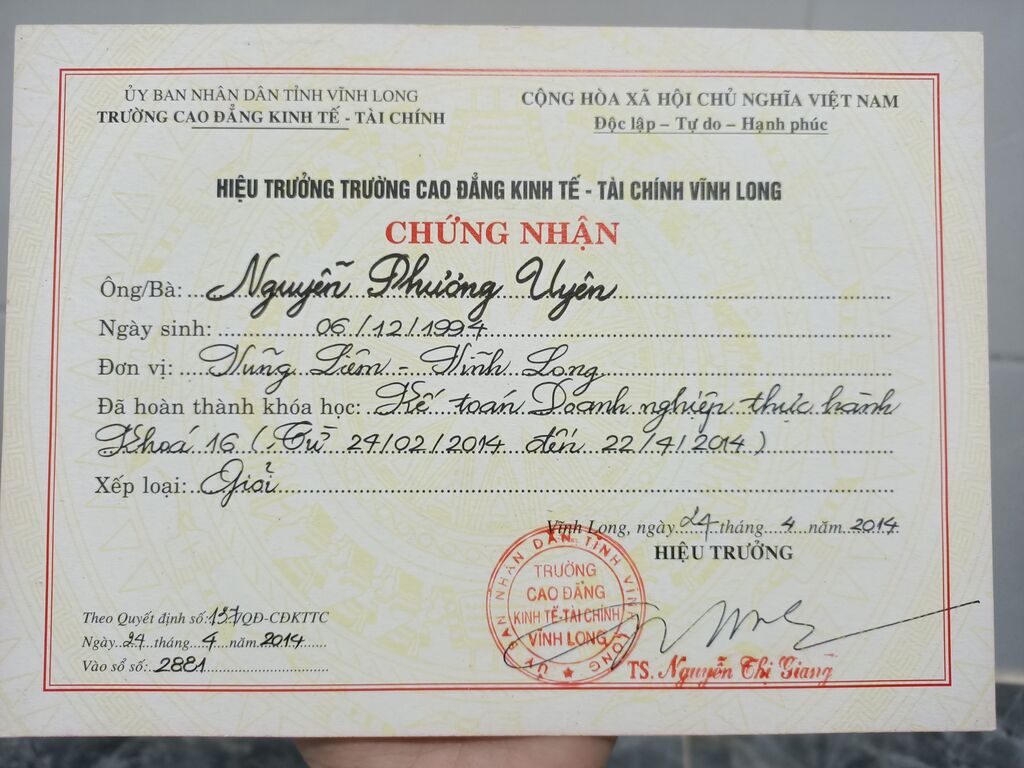 ỦY BAN NHÂN DÂN TỈNH VĨNH LONG
TRƯỜNG CAO ĐẲNG KINH TẾ - TÀI CHÍNH
CỘNG HÒA XÃ HỘI CHỦ NGHĨA VIỆT NAM
Độc lập – Tự do – Hạnh phúc
HIỆU TRƯỞNG TRƯỜNG CAO ĐẲNG KINH TẾ - TÀI CHÍNH VĨNH LONG
CHỨNG NHẬN
Ông/Bà: Nguyễn Phương Uyên
Ngày sinh: 06/12/1994
Đơn vị: Vũng Liêm - Vĩnh Long
Đã hoàn thành khóa học: Kế toán Doanh nghiệp thực hành
Khoá 16 (Từ 24/02/2014 đến 22/4/2014)
Xếp loại: Giỏi
Vĩnh Long, ngày 24 tháng 4 năm 2014
HIỆU TRƯỞNG
ỦY BAN NHÂN DÂN TỈNH VĨNH LONG
TRƯỜNG
CAO ĐẲNG
KINH TẾ-TÀI CHÍNH
VĨNH LONG
TS. Nguyễn Thị Giang
Theo Quyết định số: 137/QĐ-CĐKTTC
Ngày 24 tháng 4 năm 2014
Vào sổ số: 2881